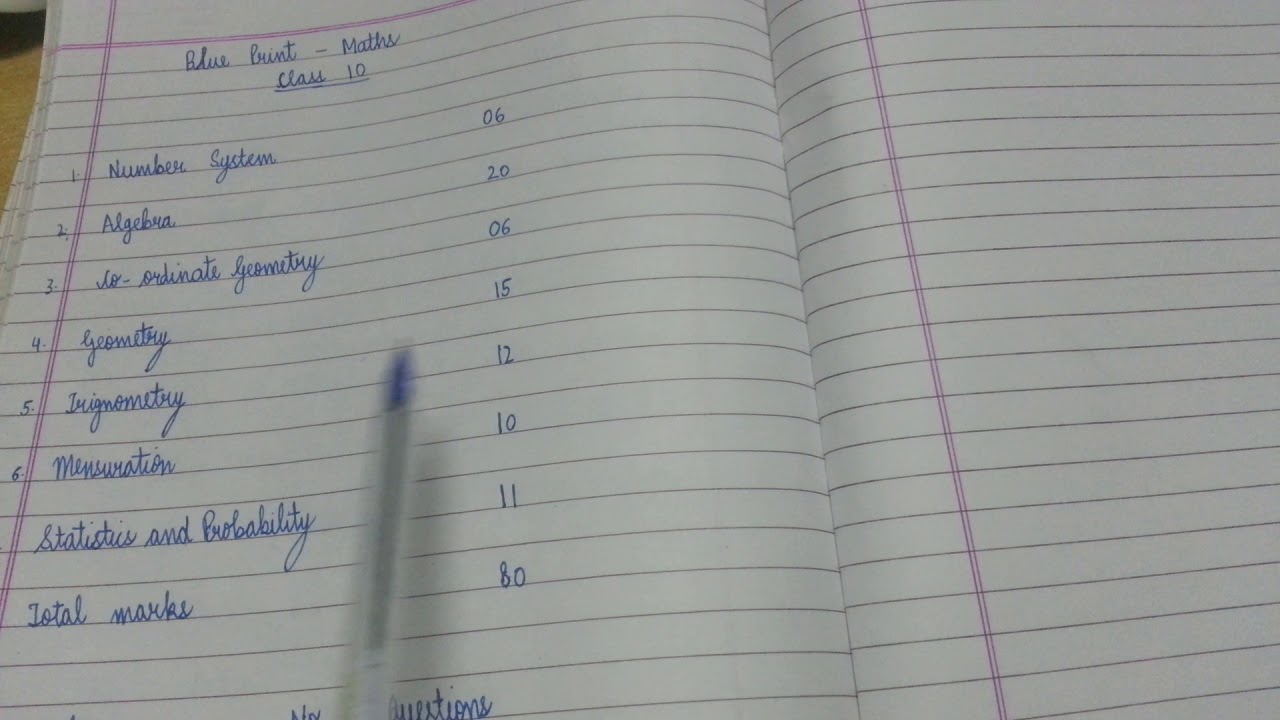 Blue Print - Maths
Class 10
1. Number System 06
2. Algebra 20
3. Co-ordinate Geometry 06
4. Geometry 15
5. Trignometry 12
6. Mensuration 10
Statistics and Probability 11
Total marks 80
No Questions